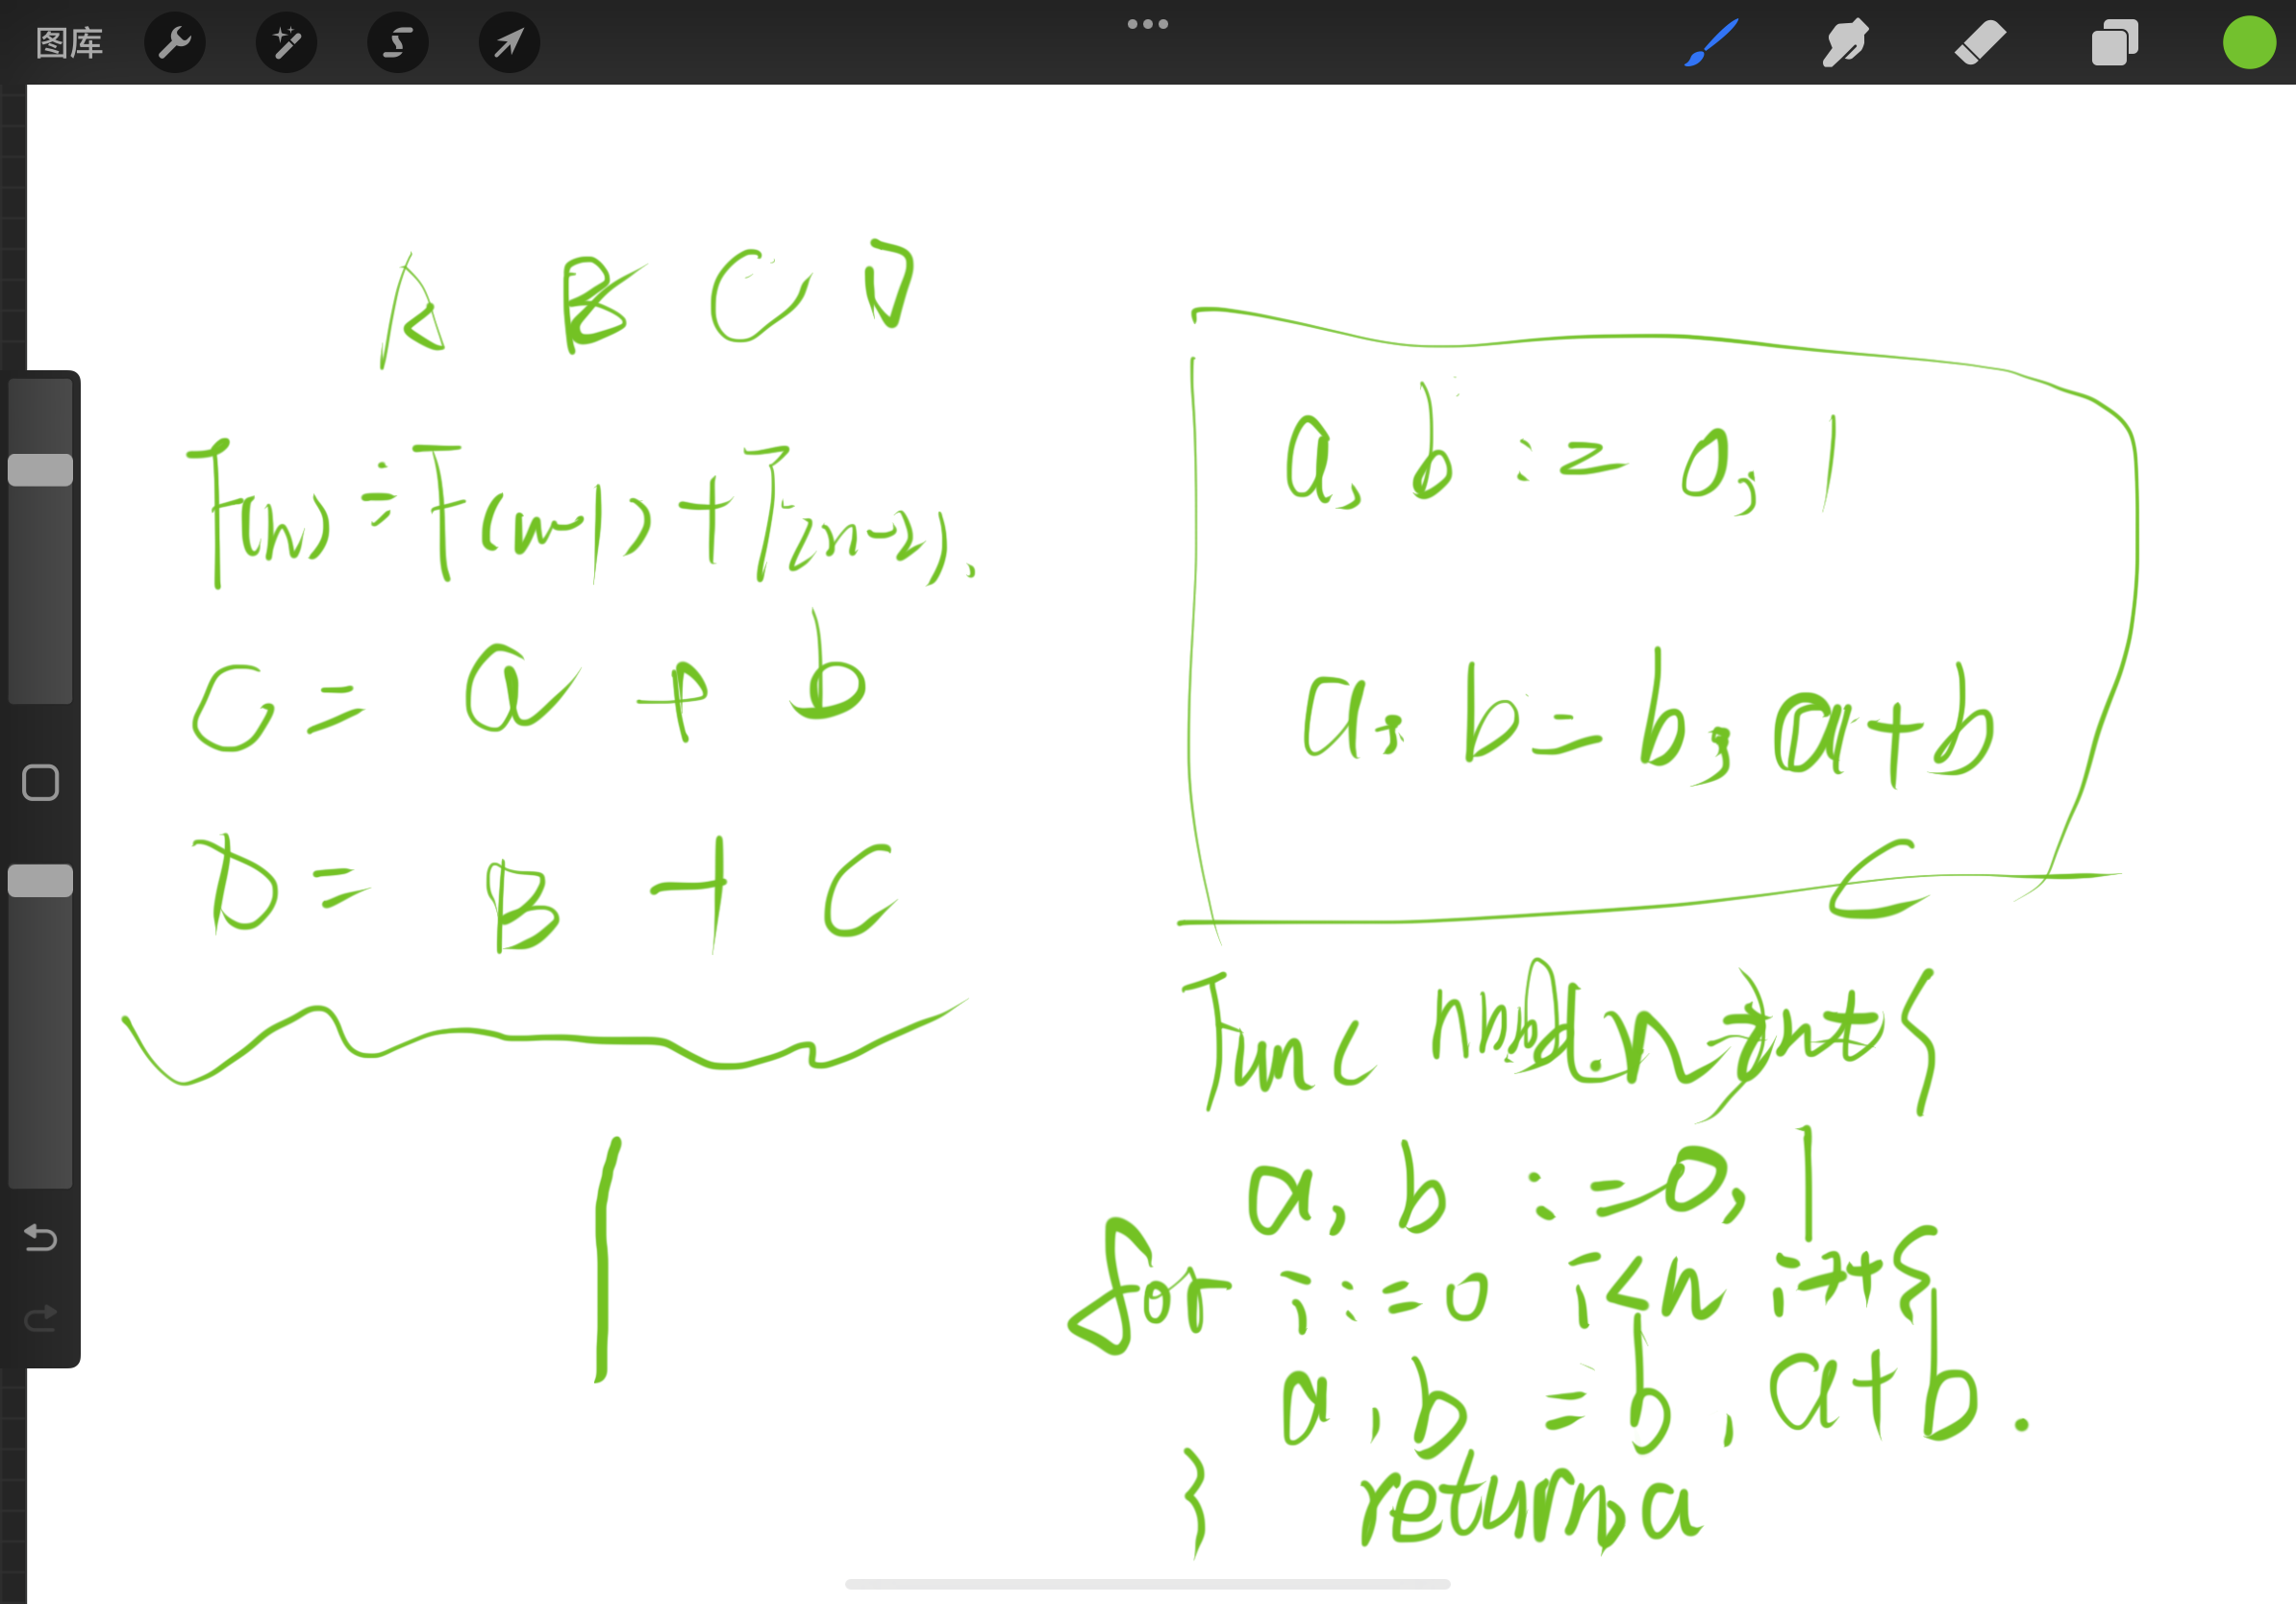 图库
A B C D
F(n) = F(n-1) + F(n-2).
C = a + b
D = B + C
a, b := 0, 1
a, b = b, a+b
C
Func int {
a, b := 0, 1
for i := 0 i<n i++ {
a, b = b, a+b.
} return a